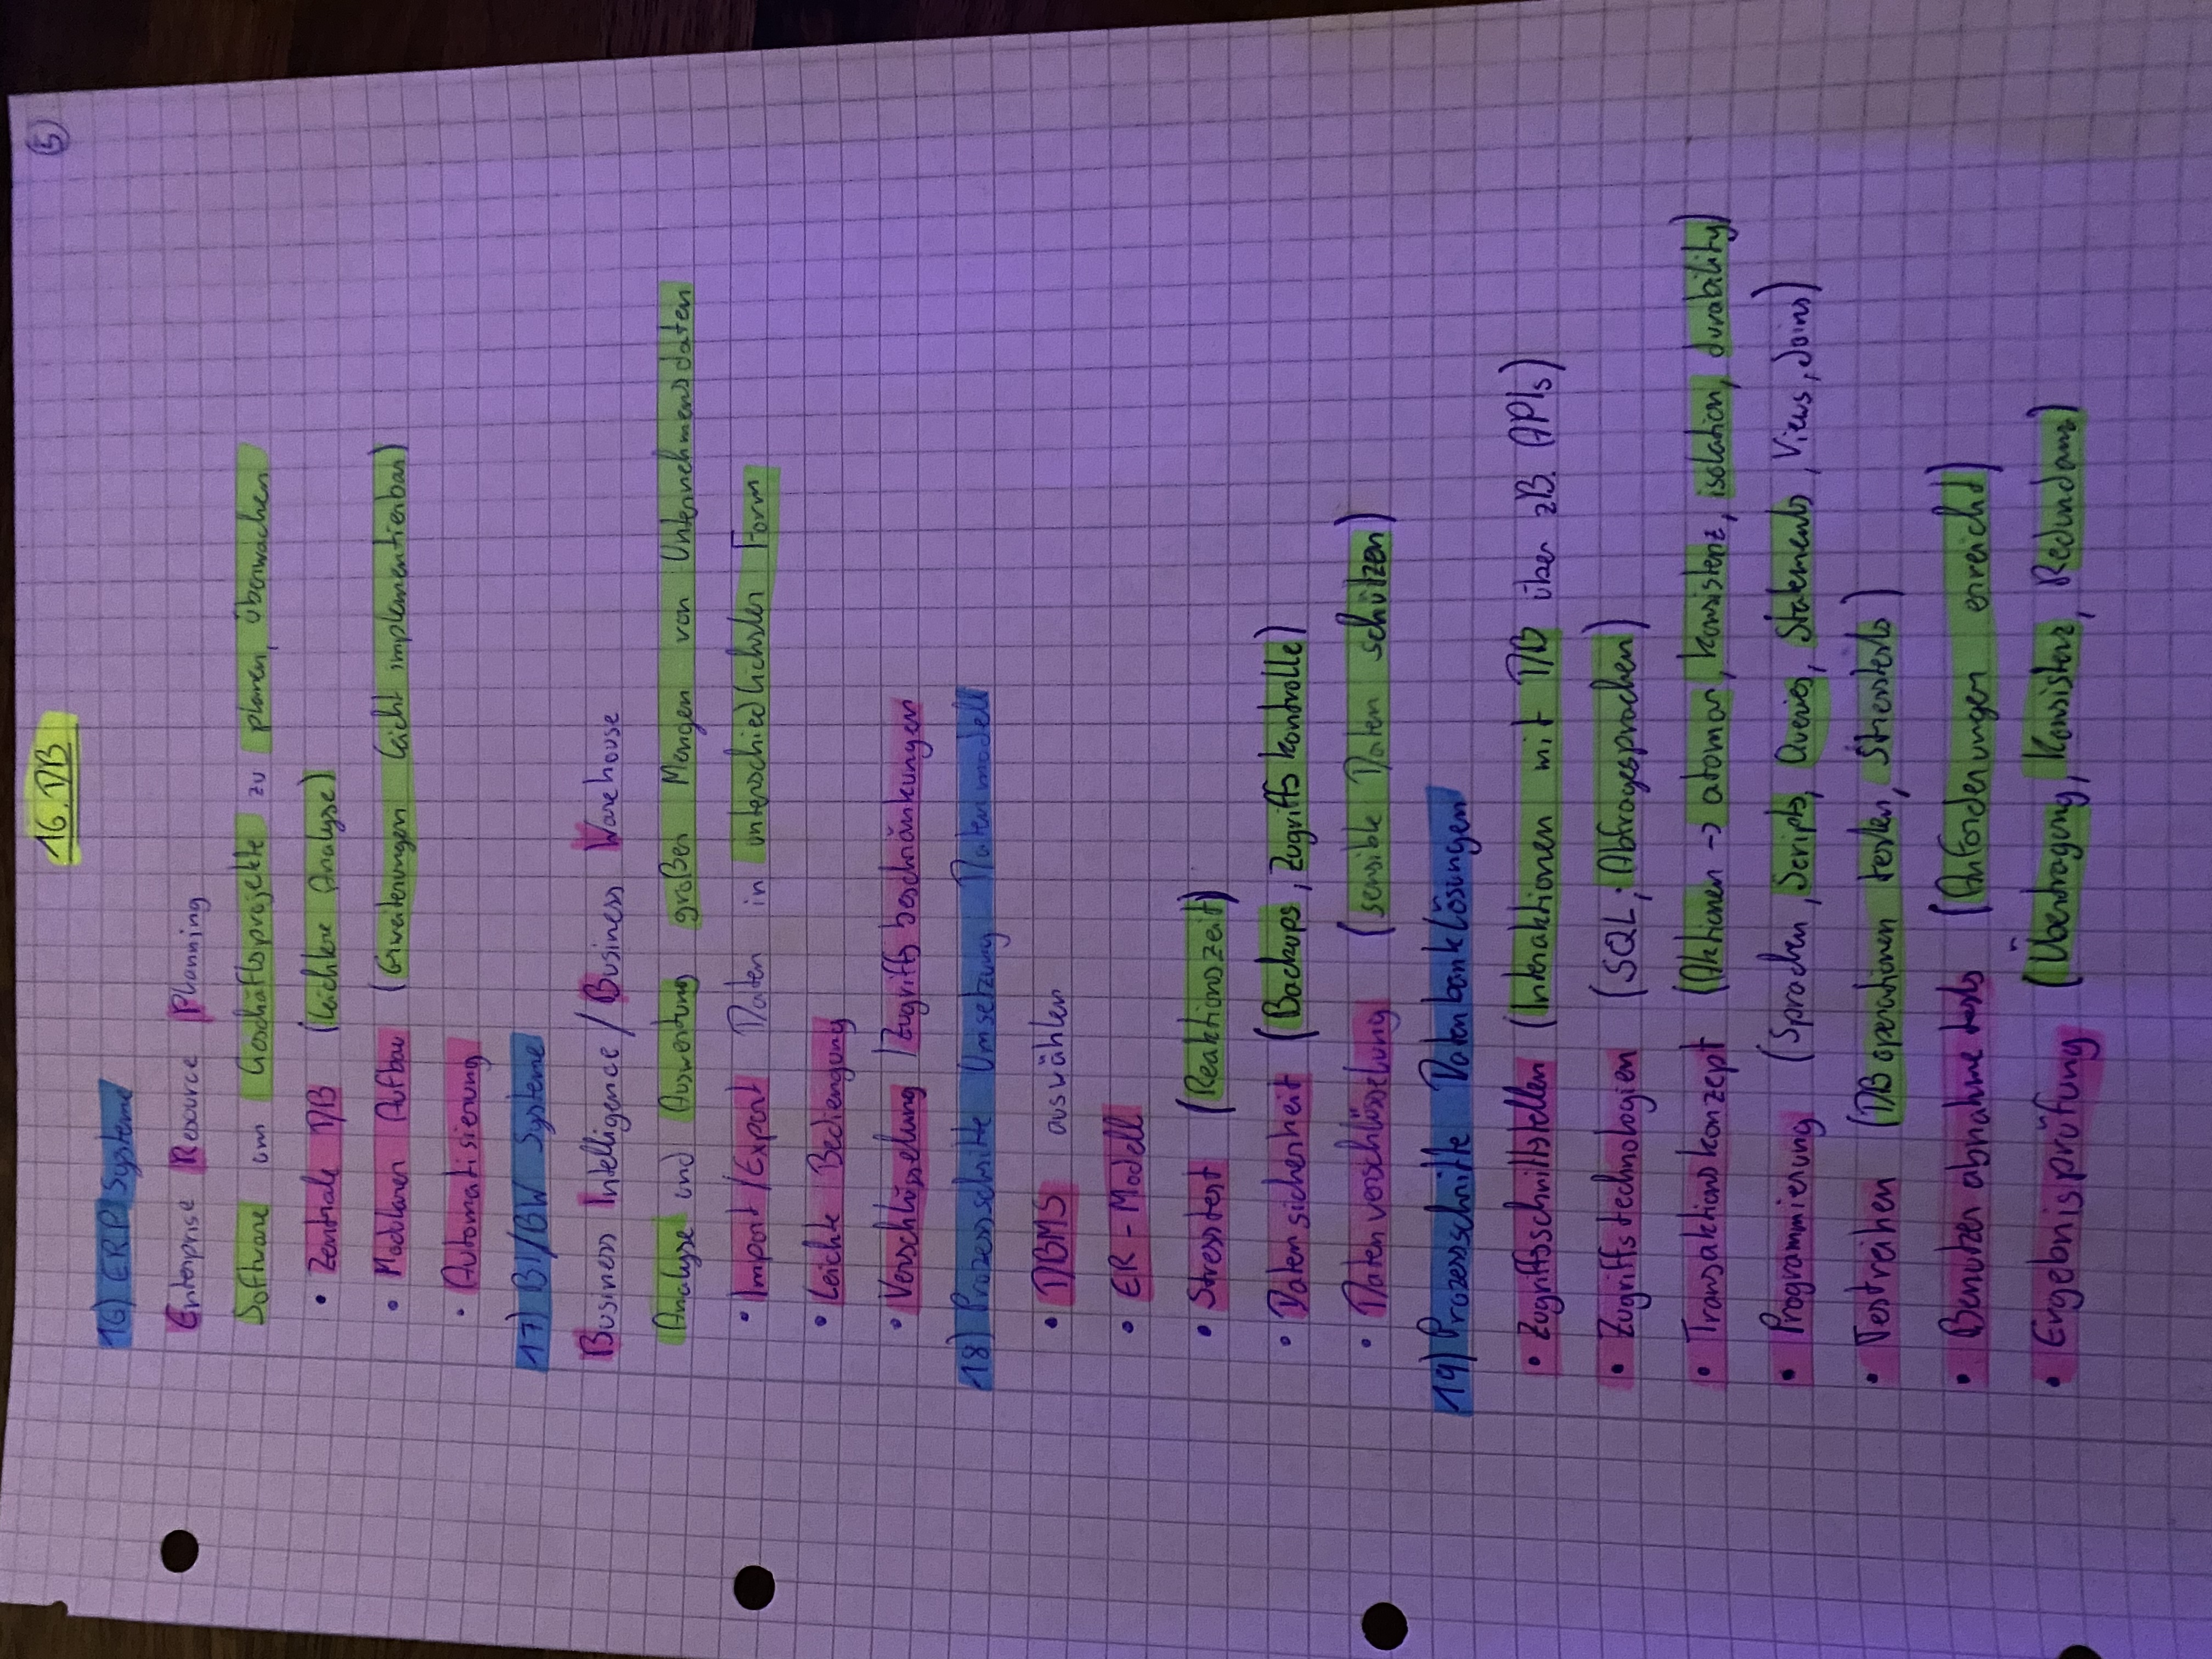 16. DB
5
16) ERP Systeme
Enterprise Resource Planning
Software um Geschäftsprojekte zu planen, überwachen
• Zentrale DB (leichtere Analyse)
• Modularer Aufbau (Erweiterungen leicht implementierbar)
• Automatisierung
17) BI/BW Systeme
Business Intelligence / Business Warehouse
Analyse und Auswertung großer Mengen von Unternehmensdaten
• Import/Export Daten in unterschiedlichster Form
• Leichte Bediengung
• Verschlüsselung / Zugriffsbeschränkungen
18) Prozessschritte Umsetzung Datenmodell
• DBMS auswählen
• ER-Modell
• Stresstest (Reaktionszeit)
• Datensicherheit (Backups, Zugriffskontrolle)
• Datenverschlüsselung (sensible Daten schützen)
19) Prozessschritte Datenbanklösungen
• Zugriffsschnittstellen (Interaktionen mit DB über zB. APIs)
• Zugriffstechnologien (SQL; Abfragesprachen)
• Transaktionskonzept (Aktionen -> atomar, konsistenz, isolation, durability)
• Programmierung (Sprachen, Scripts, Queries, Statements, Views, Joins)
• Testreihen (DB operationen testen, Stresstests)
• Benutzerabnahmetests (Anforderungen erreicht)
• Ergebnisprüfung (Übertragung, Konsistenz, Redundanz)